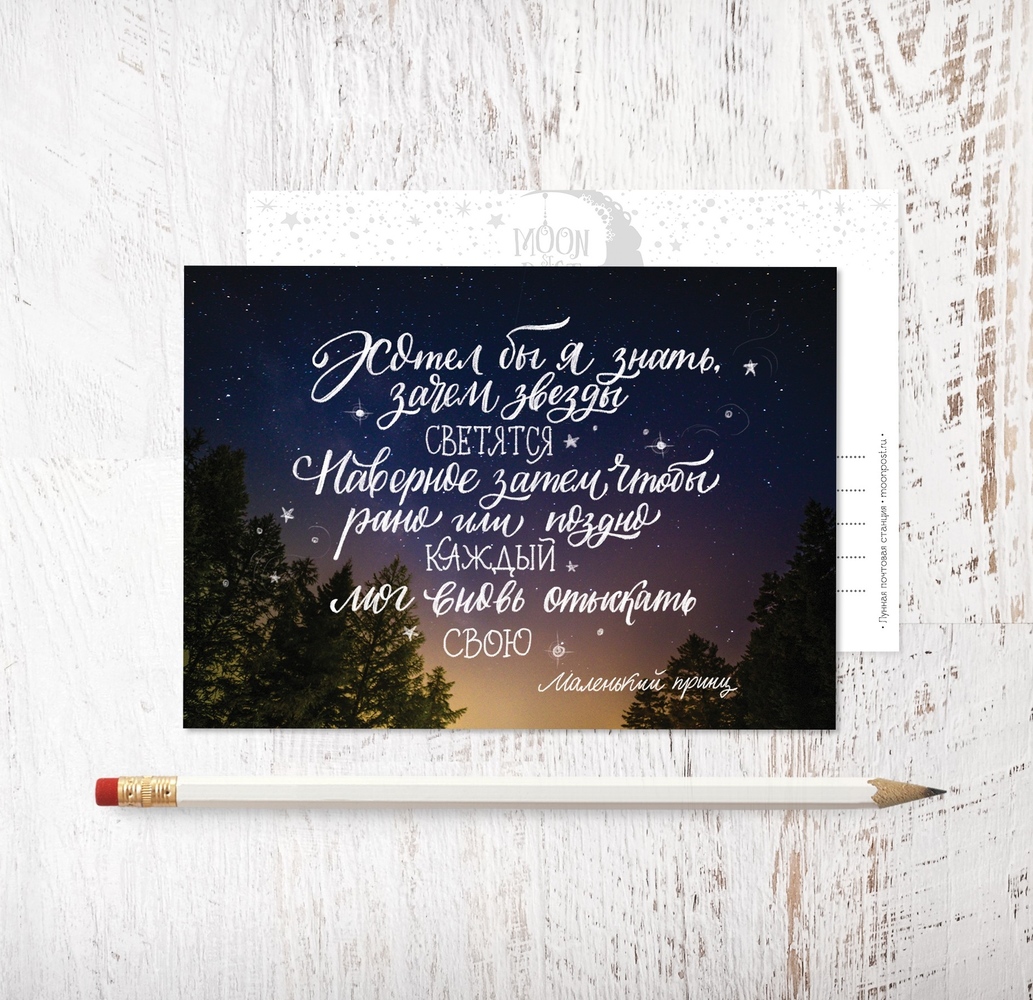 MOON
Хотел бы я знать,
зачем звезды
СВЕТЯТСЯ
Наверное затем, чтобы
рано или поздно
КАЖДЫЙ
мог вновь отыскать
СВОЮ
Маленький принц
• Лунная почтовая станция • moonpost.ru •